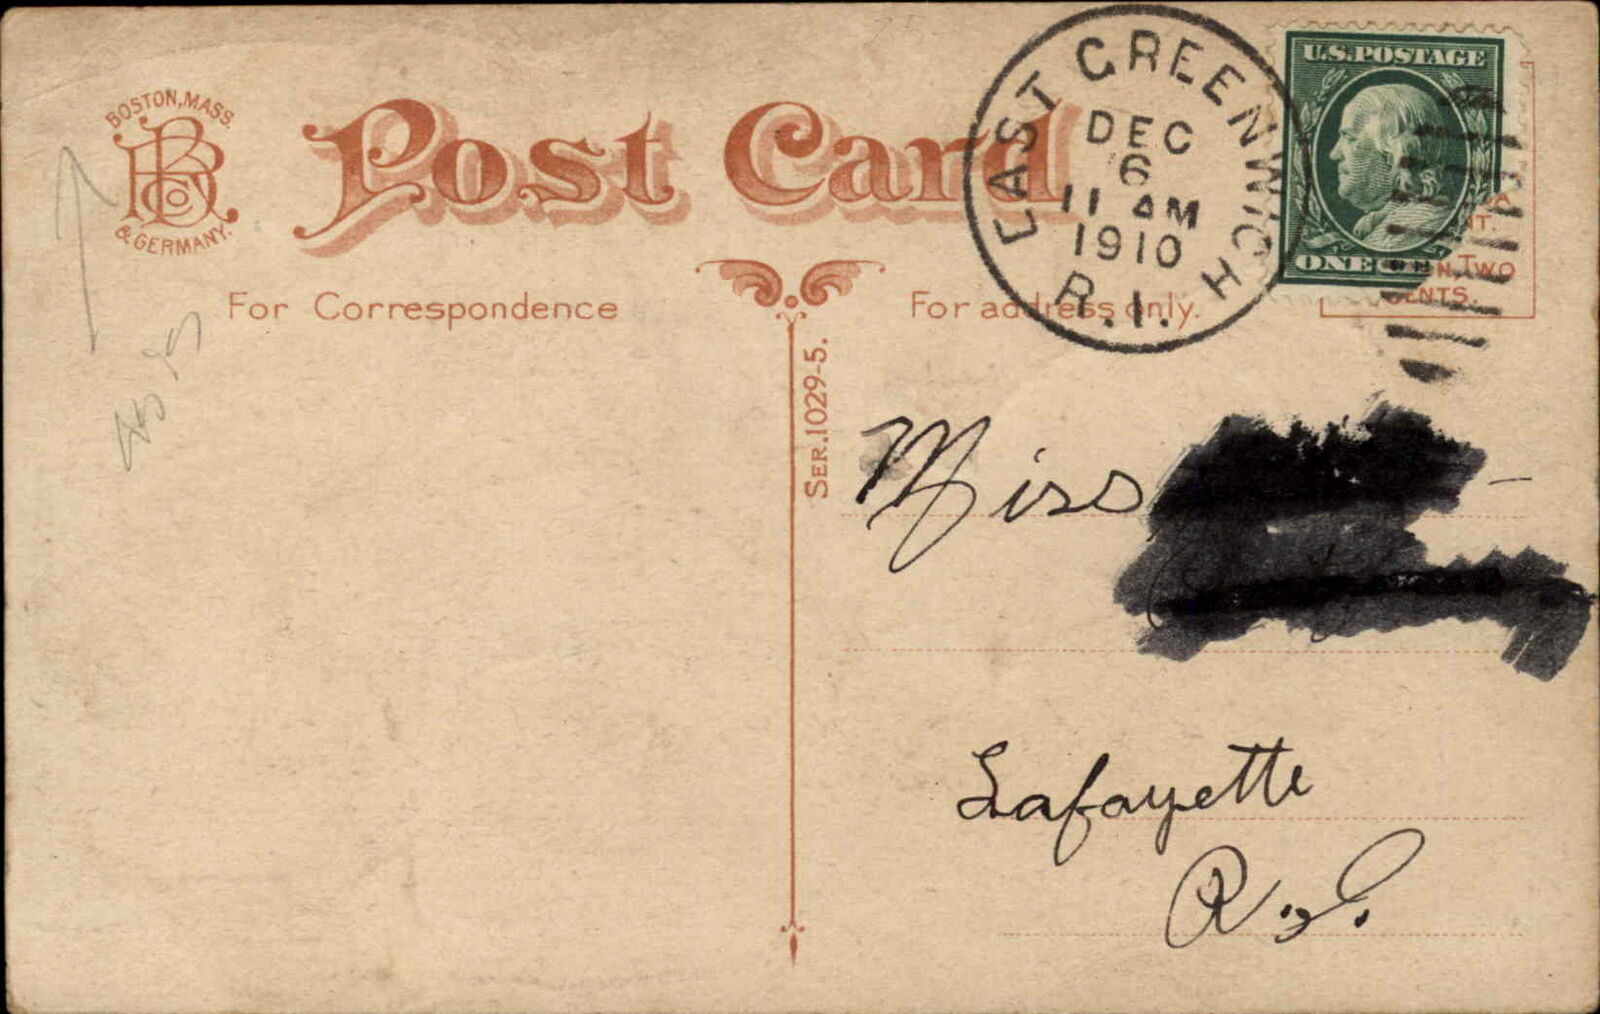 BOSTON, MASS.
& GERMANY.
Post Card
EAST GREENWICH
DEC
6
11 AM
1910
R.I.
U.S. POSTAGE
ONE
TWO
CENTS.
For Correspondence
For address only.
SER. 1029-5.
Miss
Lafayette
R.I.